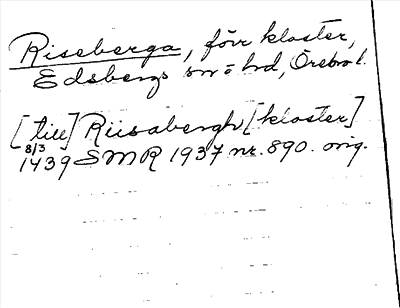 Riseberga, förr kloster,
Edsbergs sn o hd, Örebro l.
[till] Riisabergh [kloster]
8/3
1439 SMR 1937 nr. 890. orig.